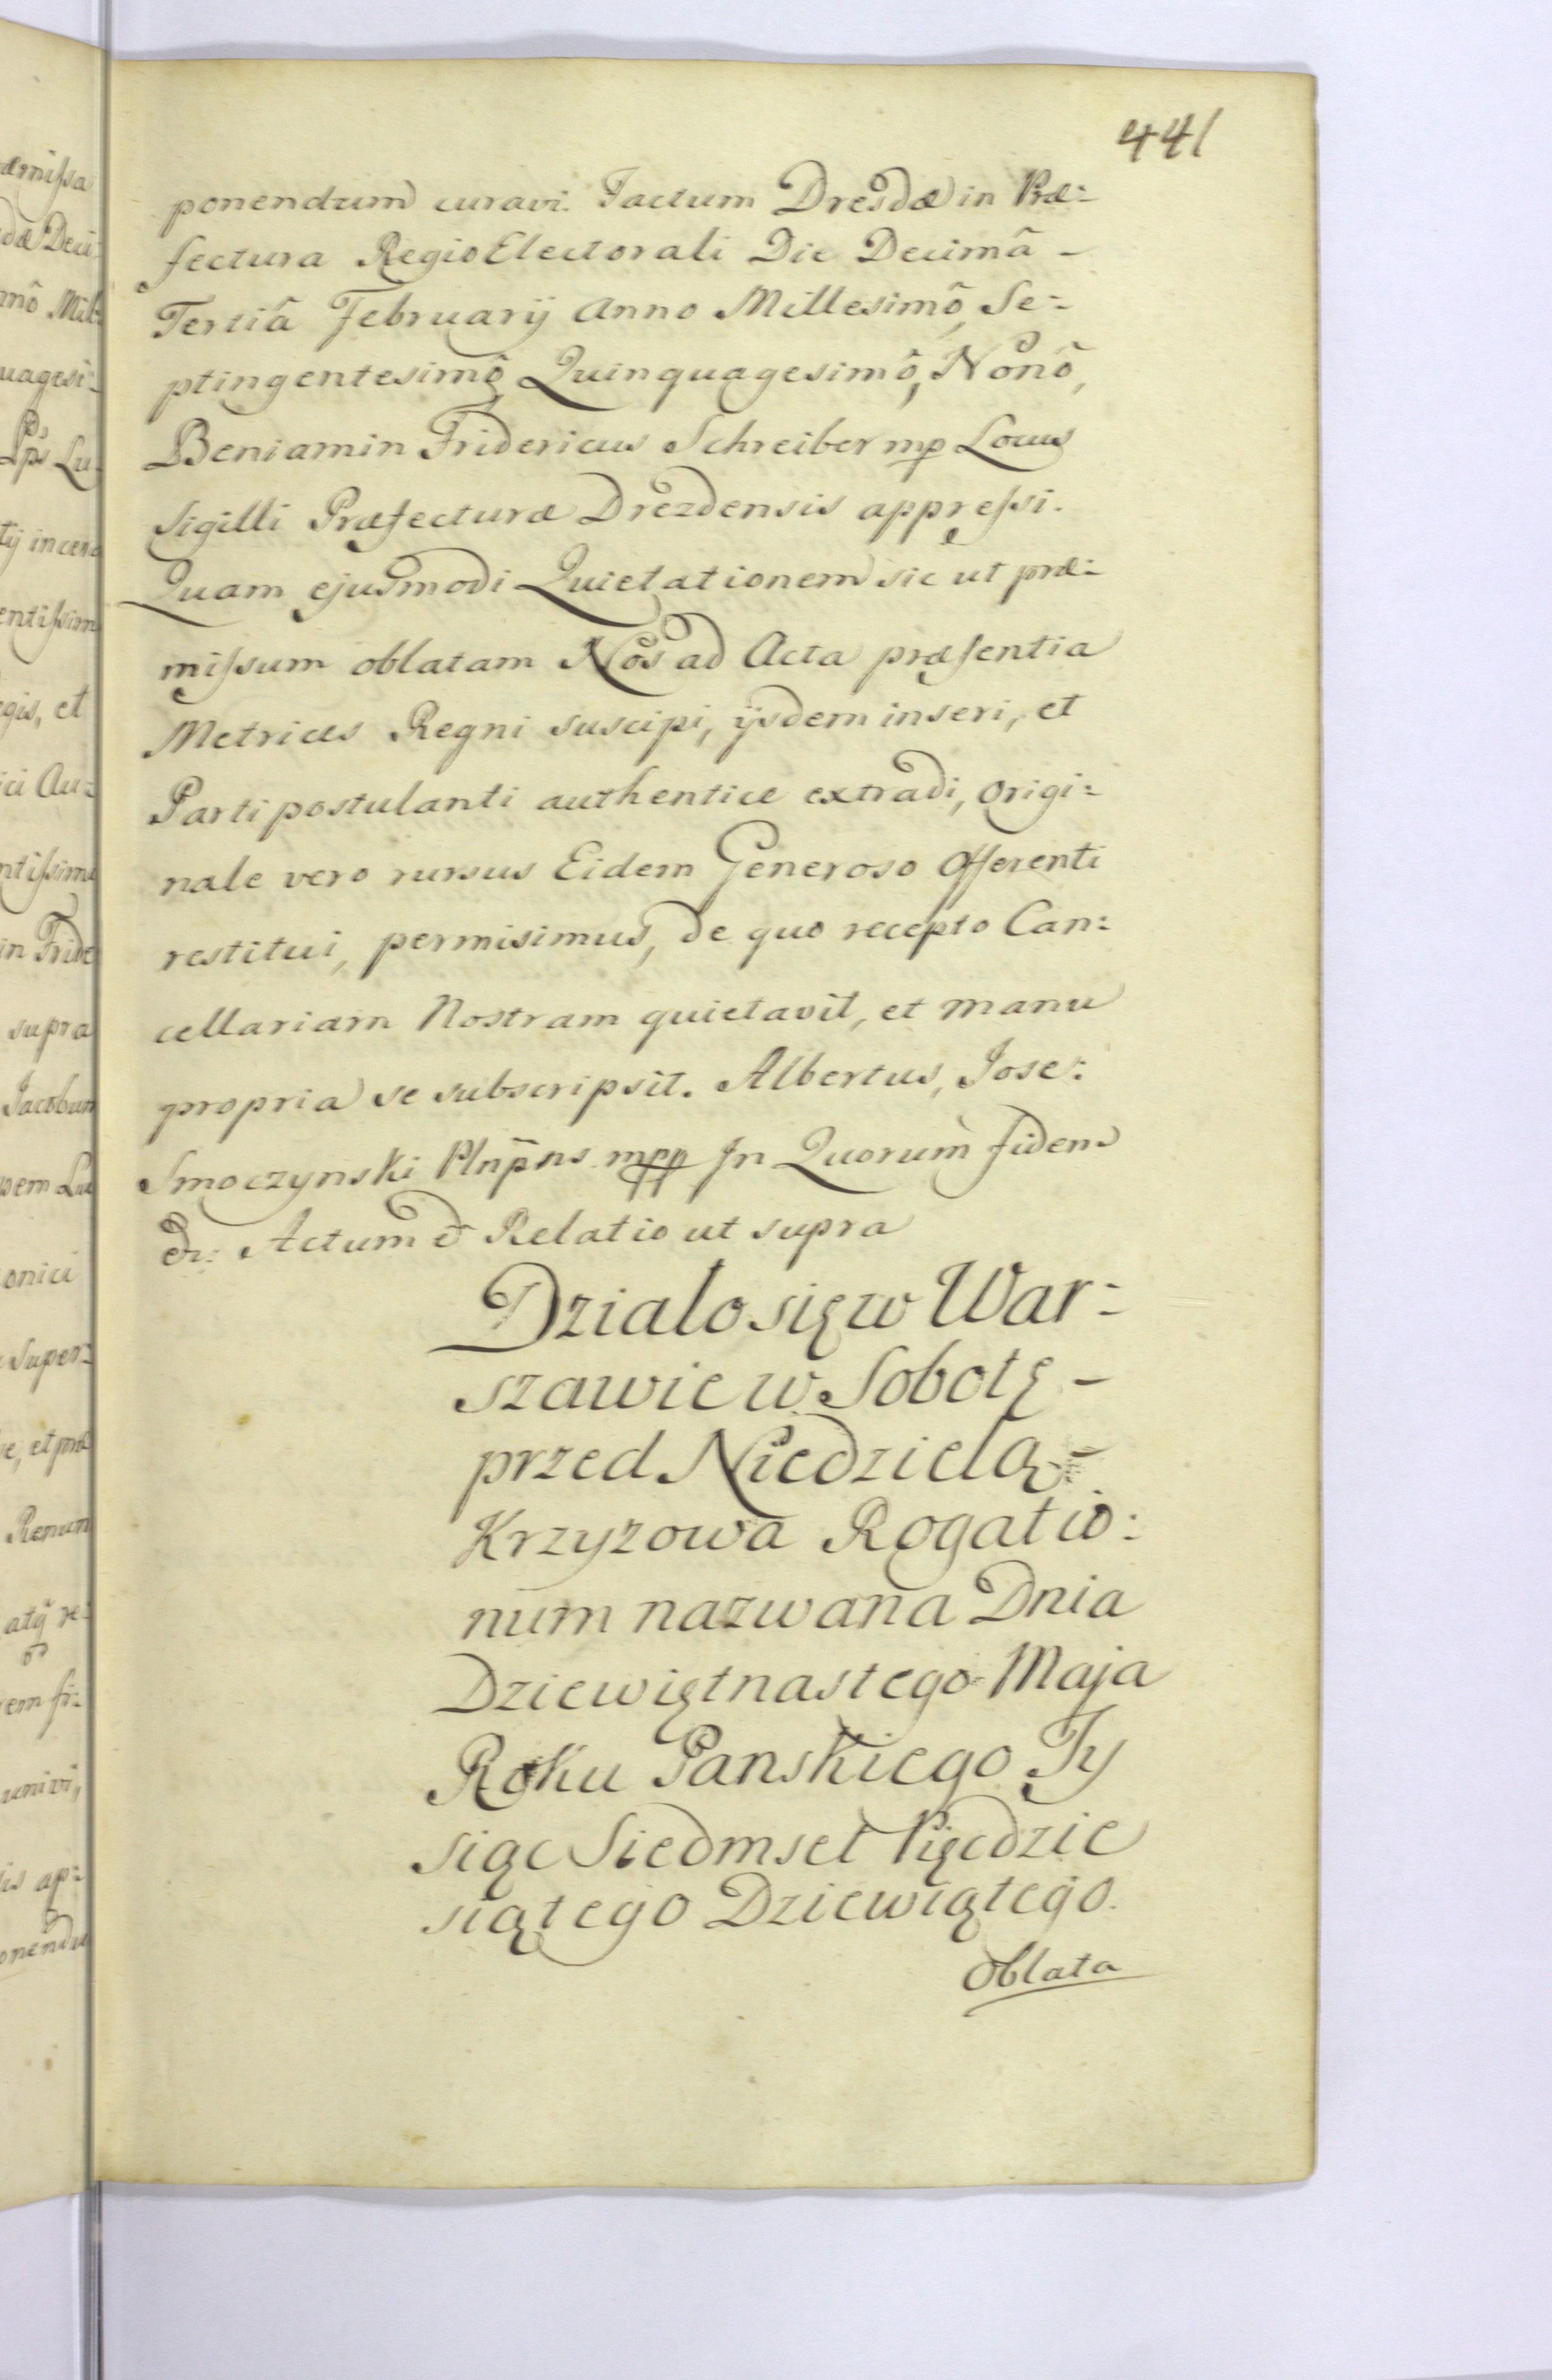 441
ponendum curavi. Factum Dresdæ in Præ=
fectura Regio Electorali Die Decimâ -
Tertiâ February Anno Millesimô, Se=
ptingentesimô Quinquagesimô, Nonô,
Beniamin Fridericus Schreiber mp Locus
Sigilli Præfecturæ Drezdensis appressi.
Quam ejusmodi Quietationem sic ut præ=
missum oblatam Nos ad Acta præsentia
Metrices Regni suscipi, ijsdem inseri, et
Parti postulanti authentice extradi, origi=
nale vero rursus Eidem Generoso Offerenti
restitui, permisimus, de quo recepto Can=
cellariam Nostram quietavit, et manu
propria se subscripsit. Albertus, Jose:
Smoczynski Plnp̄ns mpp In Quorum fidem
&: Actum & Relatio ut supra
Dzialo się w War=
szawie w Sobotę -
przed Niedzielą -
Krzyzowa Rogatio:
num nazwana Dnia
Dziewiętnastego Maja
Roku Panskiego Ty
siąc Siedmset Pięcdzie
siątego Dziewiątego.
Oblata